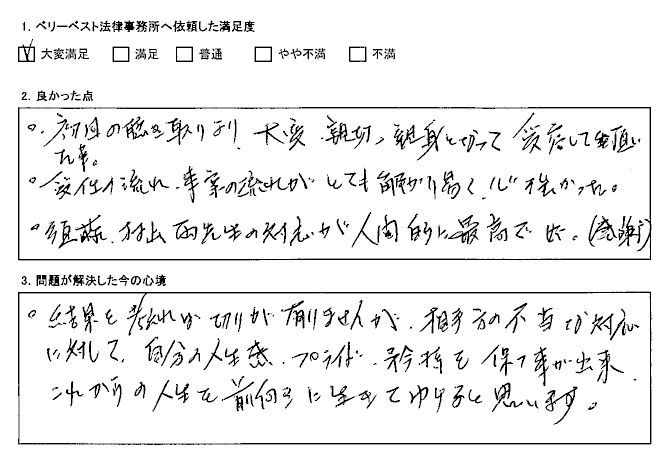 1. ベリーベスト法律事務所へ依頼した満足度
大変満足 満足 普通 やや不満 不満
2. 良かった点
○. 初回の聴き取りより、大変、親切、親身となって 応して頂い
た事。
○ 受任の流れ、事案の流れが とても 解かり易く、心 強かった。
○ 須藤、村上両先生の対応が人間的に最高でした。(感謝)
3. 問題が解決した今の心境
○ 結果を考えれば切りが有りませんが、相手方の不当な対応
に対して、自分の人生感、プライド、矜持を保つ事が出来、
これからの人生を前向きに生きてゆけると思います。